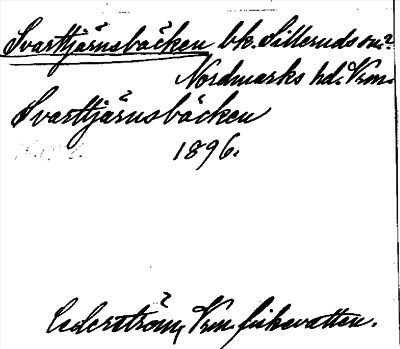 Svarttjärnsbäcken bk. Silleruds sn?
Nordmarks hd. Vrm.
Svarttjärnsbäcken
1896.
Cederström, Vrm. fiskevatten.